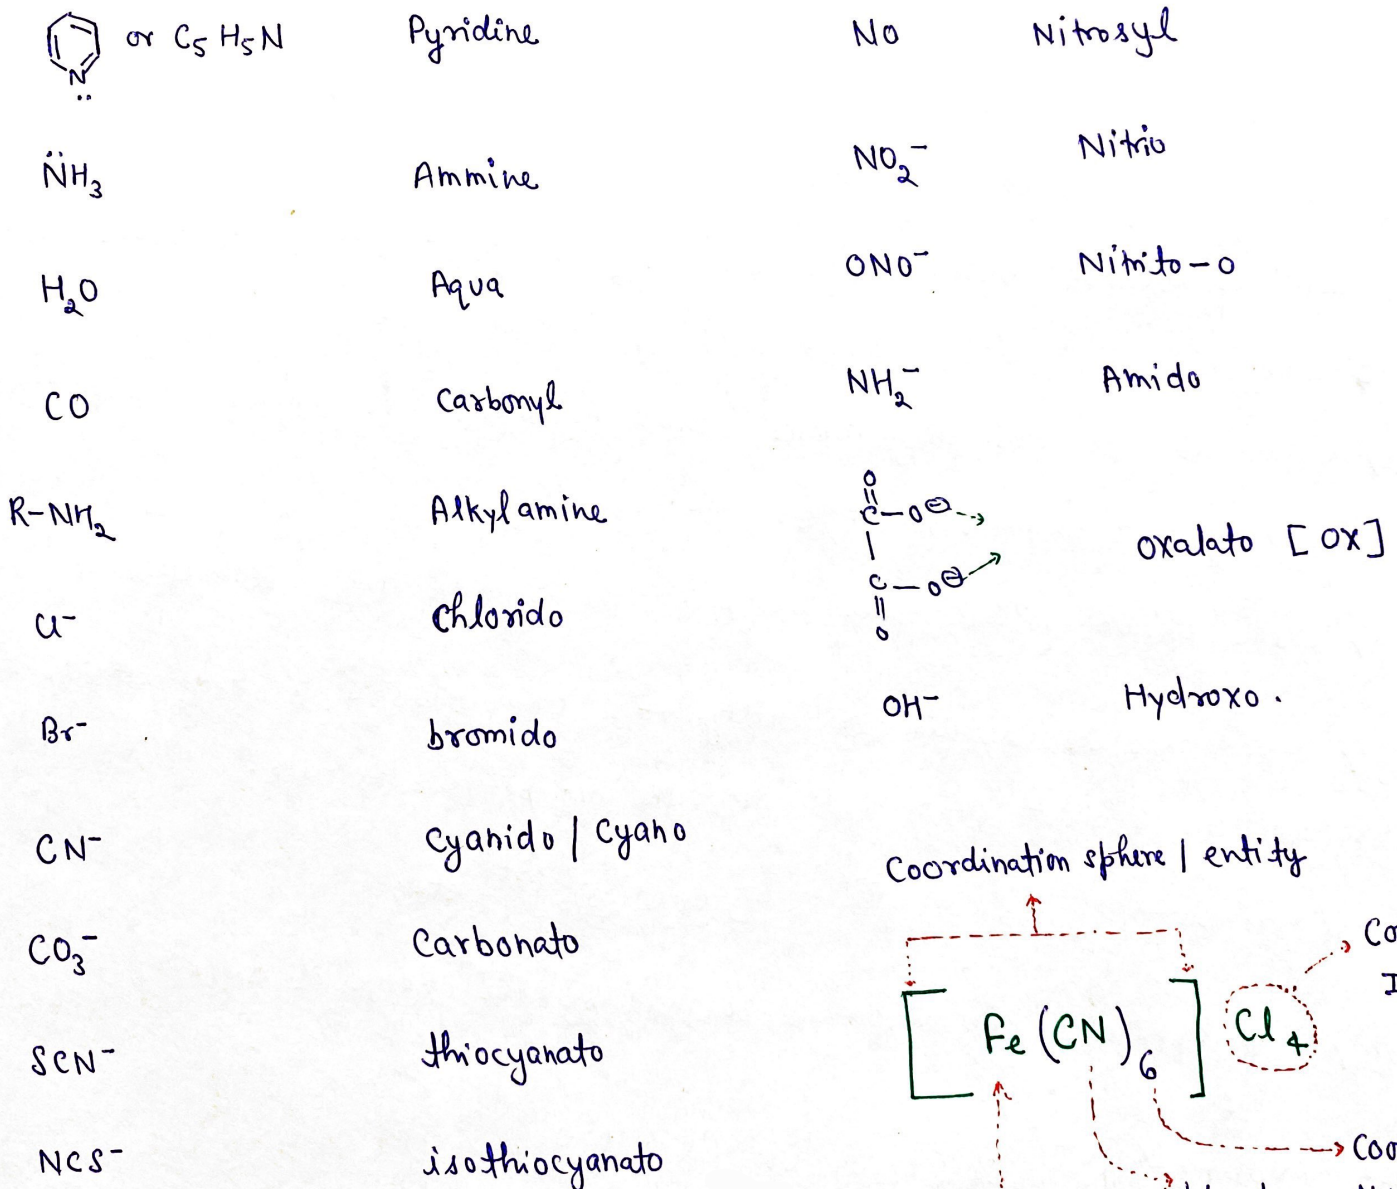 N or C5H5N Pyridine
N̈H3 Ammine
H2O Aqua
CO Carbonyl
R-NH2 Alkylamine
Cl⁻ Chlorido
Br⁻ bromido
CN⁻ Cyanido / Cyano
CO3⁻ Carbonato
SCN⁻ thiocyanato
NCS⁻ isothiocyanato
NO Nitrosyl
NO2⁻ Nitrio
ONO⁻ Nitrito-O
NH2⁻ Amido
O
C-O⊖
C-O⊖
O
Oxalato [OX]
OH⁻ Hydroxo.
Coordination sphere / entity
[Fe(CN)6]Cl4
Co
I
Coo